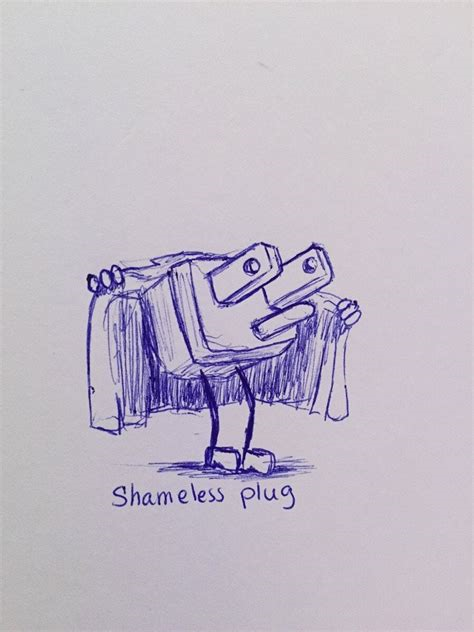 Shameless plug